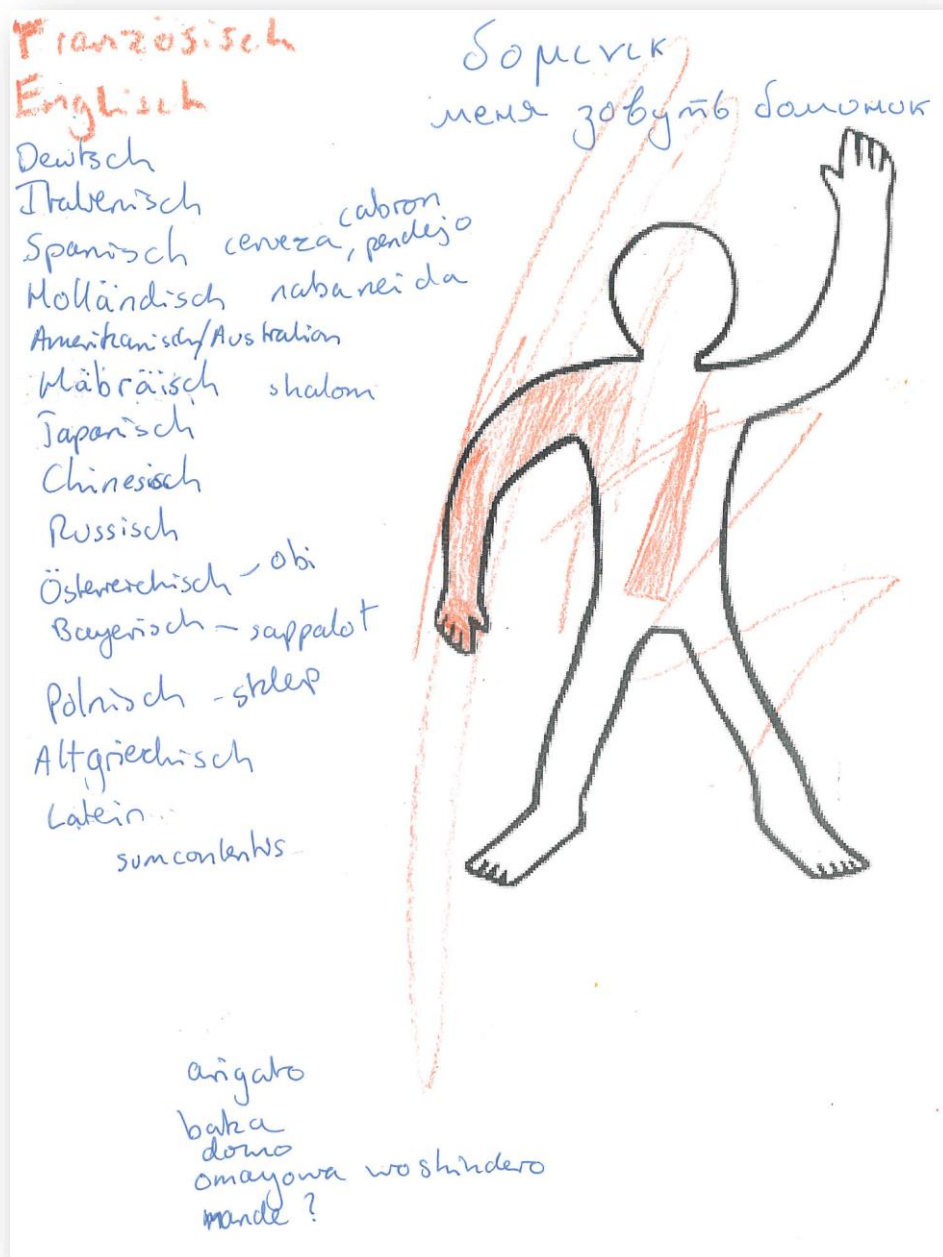 Französisch
Englisch
Deutsch
Italienisch
Spanisch cerveza, cabron
pendejo
Holländisch nabaneida
Amerikanisch/Australian
Häbräisch shalom
Japanisch
Chinesisch
Russisch
Österreichisch - obi
Bayerisch - sappalot
Polnisch - sklep
Altgriechisch
Latein
sum contentus
меня зовуть
arigato
baka
domo
omayowa wo shindero
mande ?